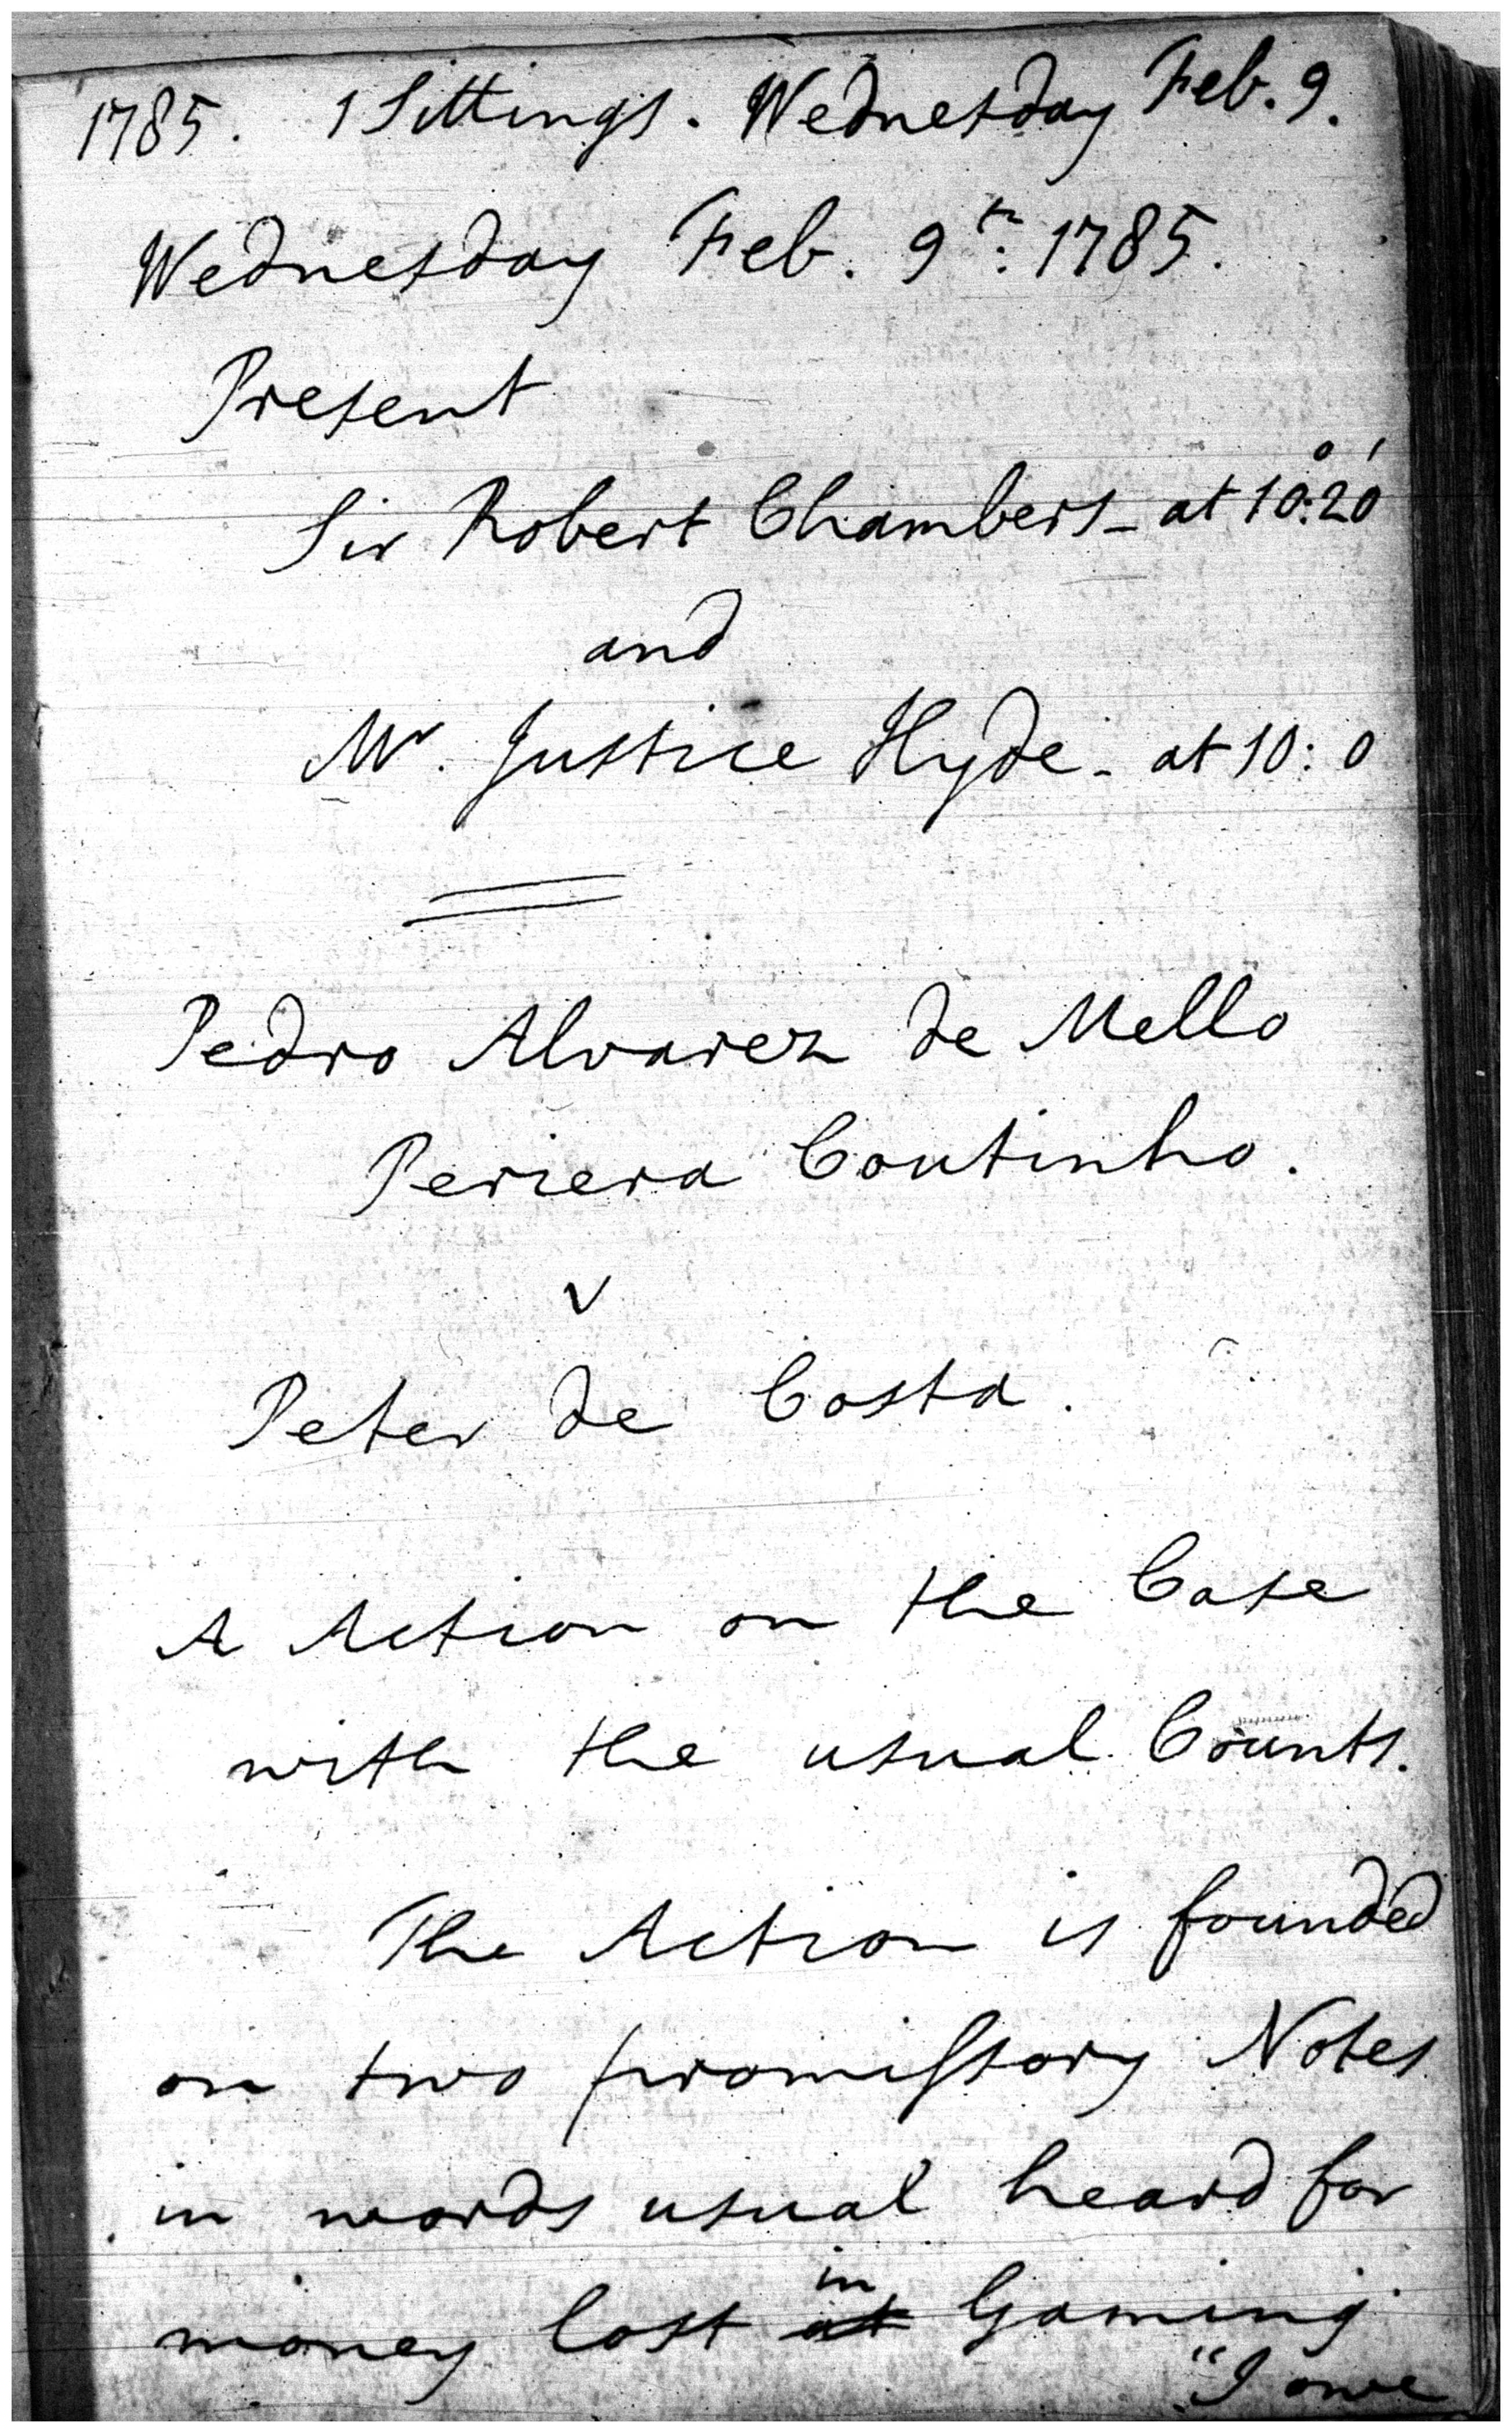 1785. 1 Sittings. Wednesday Feb. 9.
Wednesday Feb. 9th: 1785.
Present
Sir Robert Chambers - at 10°:20'
and
Mr. Justice Hyde - at 10:0
Pedro Alvarez de Mello
Periera Coutinho.
v
Peter de Costa.
A Action on the Case
with the usual Counts.
The Action is founded
on two promissory Notes
in words usual heard for
money lost ~~at~~ in Gaming
"I owe